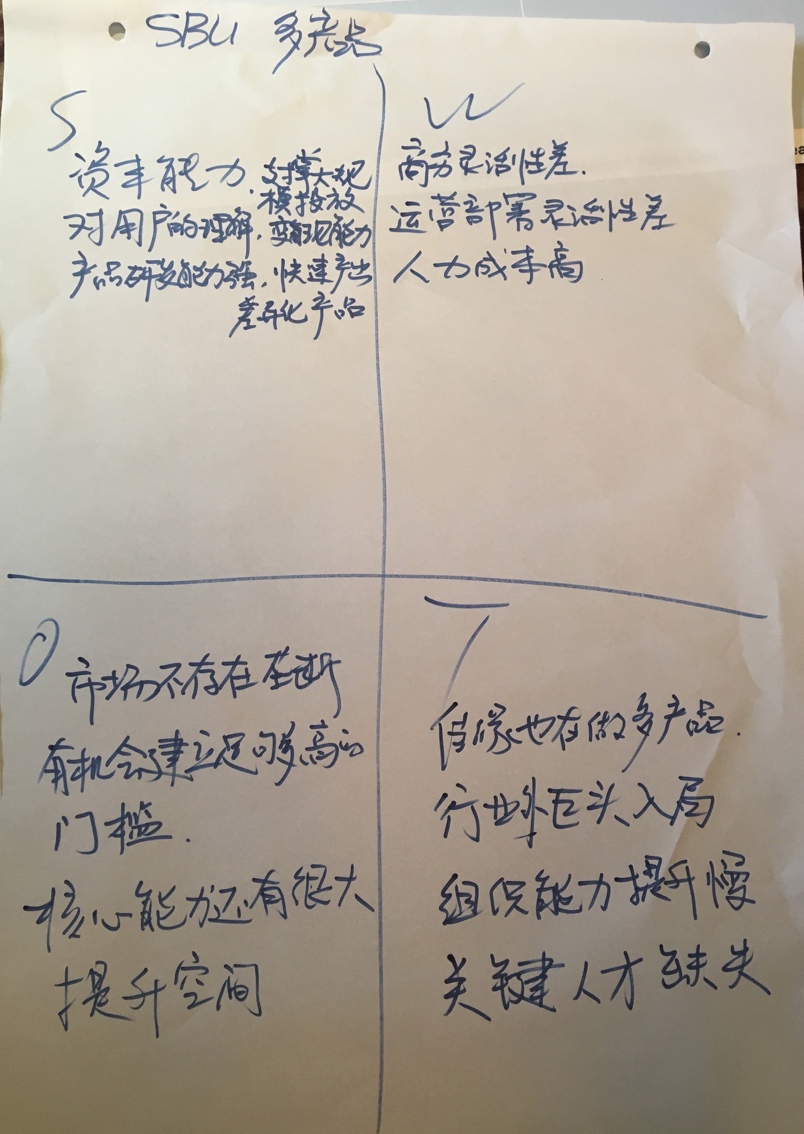 SBU 多产品
S
资本能力,支撑大规
模投放
对用户的理解,变现能力
产品研发能力强,快速产出
差异化产品
W
商务灵活性差.
运营部署灵活性差
人力成本高
O
市场不存在垄断
有机会建立足够高的
门槛.
核心能力还有很大
提升空间
T
也在做多产品.
行业外巨头入局
组织能力提升慢
关键人才缺失